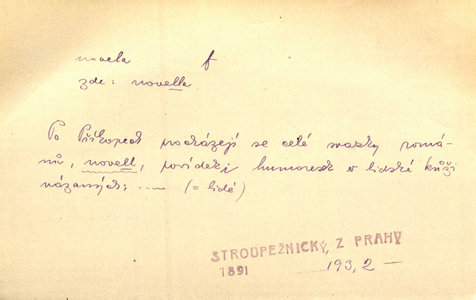 novela f
zde: novella
Po Příkopech procházejí se celé svazky romá-
nů, novell, povídek i humoresk v lidské kůži
vázaných: .... (= lidé)
STROUPEŽNICKÝ, Z PRAHY
1891 193,2 —